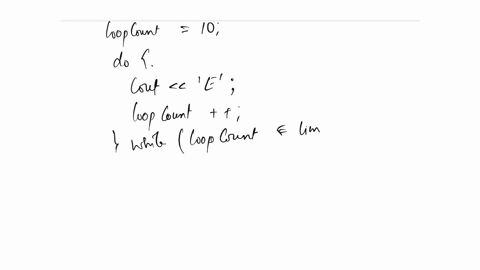 loopCount = 10;
do {.
cout << 'E';
loopCount ++;
} while (loopCount ≤ lim